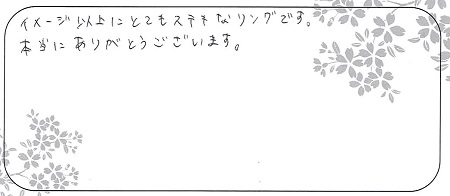 イメージ以上にとてもステキなリングです。
本当にありがとうございます。